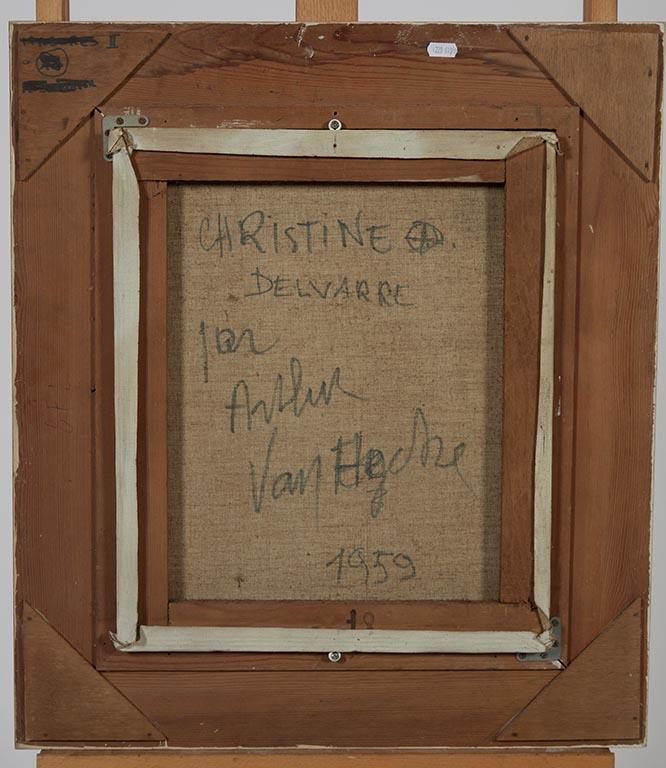 II
CHRISTINE A.
DELVARRE
par
Arthur
Van Hecke
1959
18